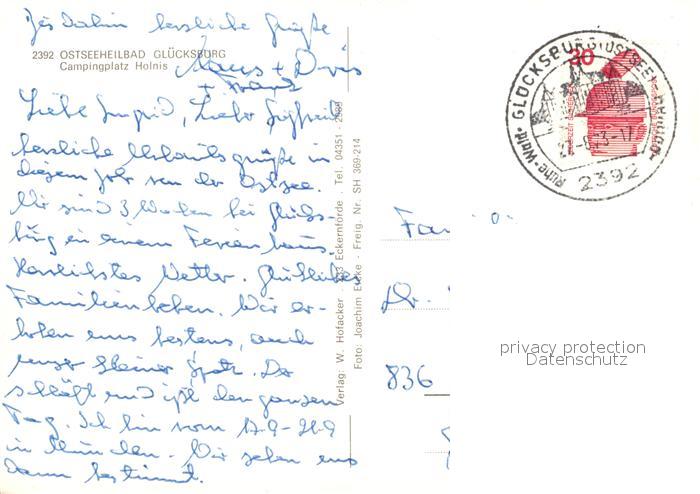 Bis dahin herzliche Grüße
2392 OSTSEEHEILBAD GLÜCKSBURG
Campingplatz Holnis
Klaus + Doris
+ Frank
Liebe Ingrid, Lieber Siegfried
herzliche Urlaubsgrüße in
diesem Jahr von der Ostsee.
Wir sind 3 Wochen bei Glücks-
burg in einem Ferienhaus.
Herrlichstes Wetter. Glückliches
Familienleben. Wir er-
holen uns bestens, auch
unser kleiner Spatz. Der
schläft und ißt den ganzen
Tag. Ich bin vom 17.9-21.9
in München. Wir sehen uns
dann bestimmt.
Verlag: W. Hofacker 233 Eckernförde Tel. 04351
Foto: Joachim Freig. Nr. SH 369-214
30
GLÜCKSBURG (OSTSEE)
2392
Dr.
836
privacy protection
Datenschutz